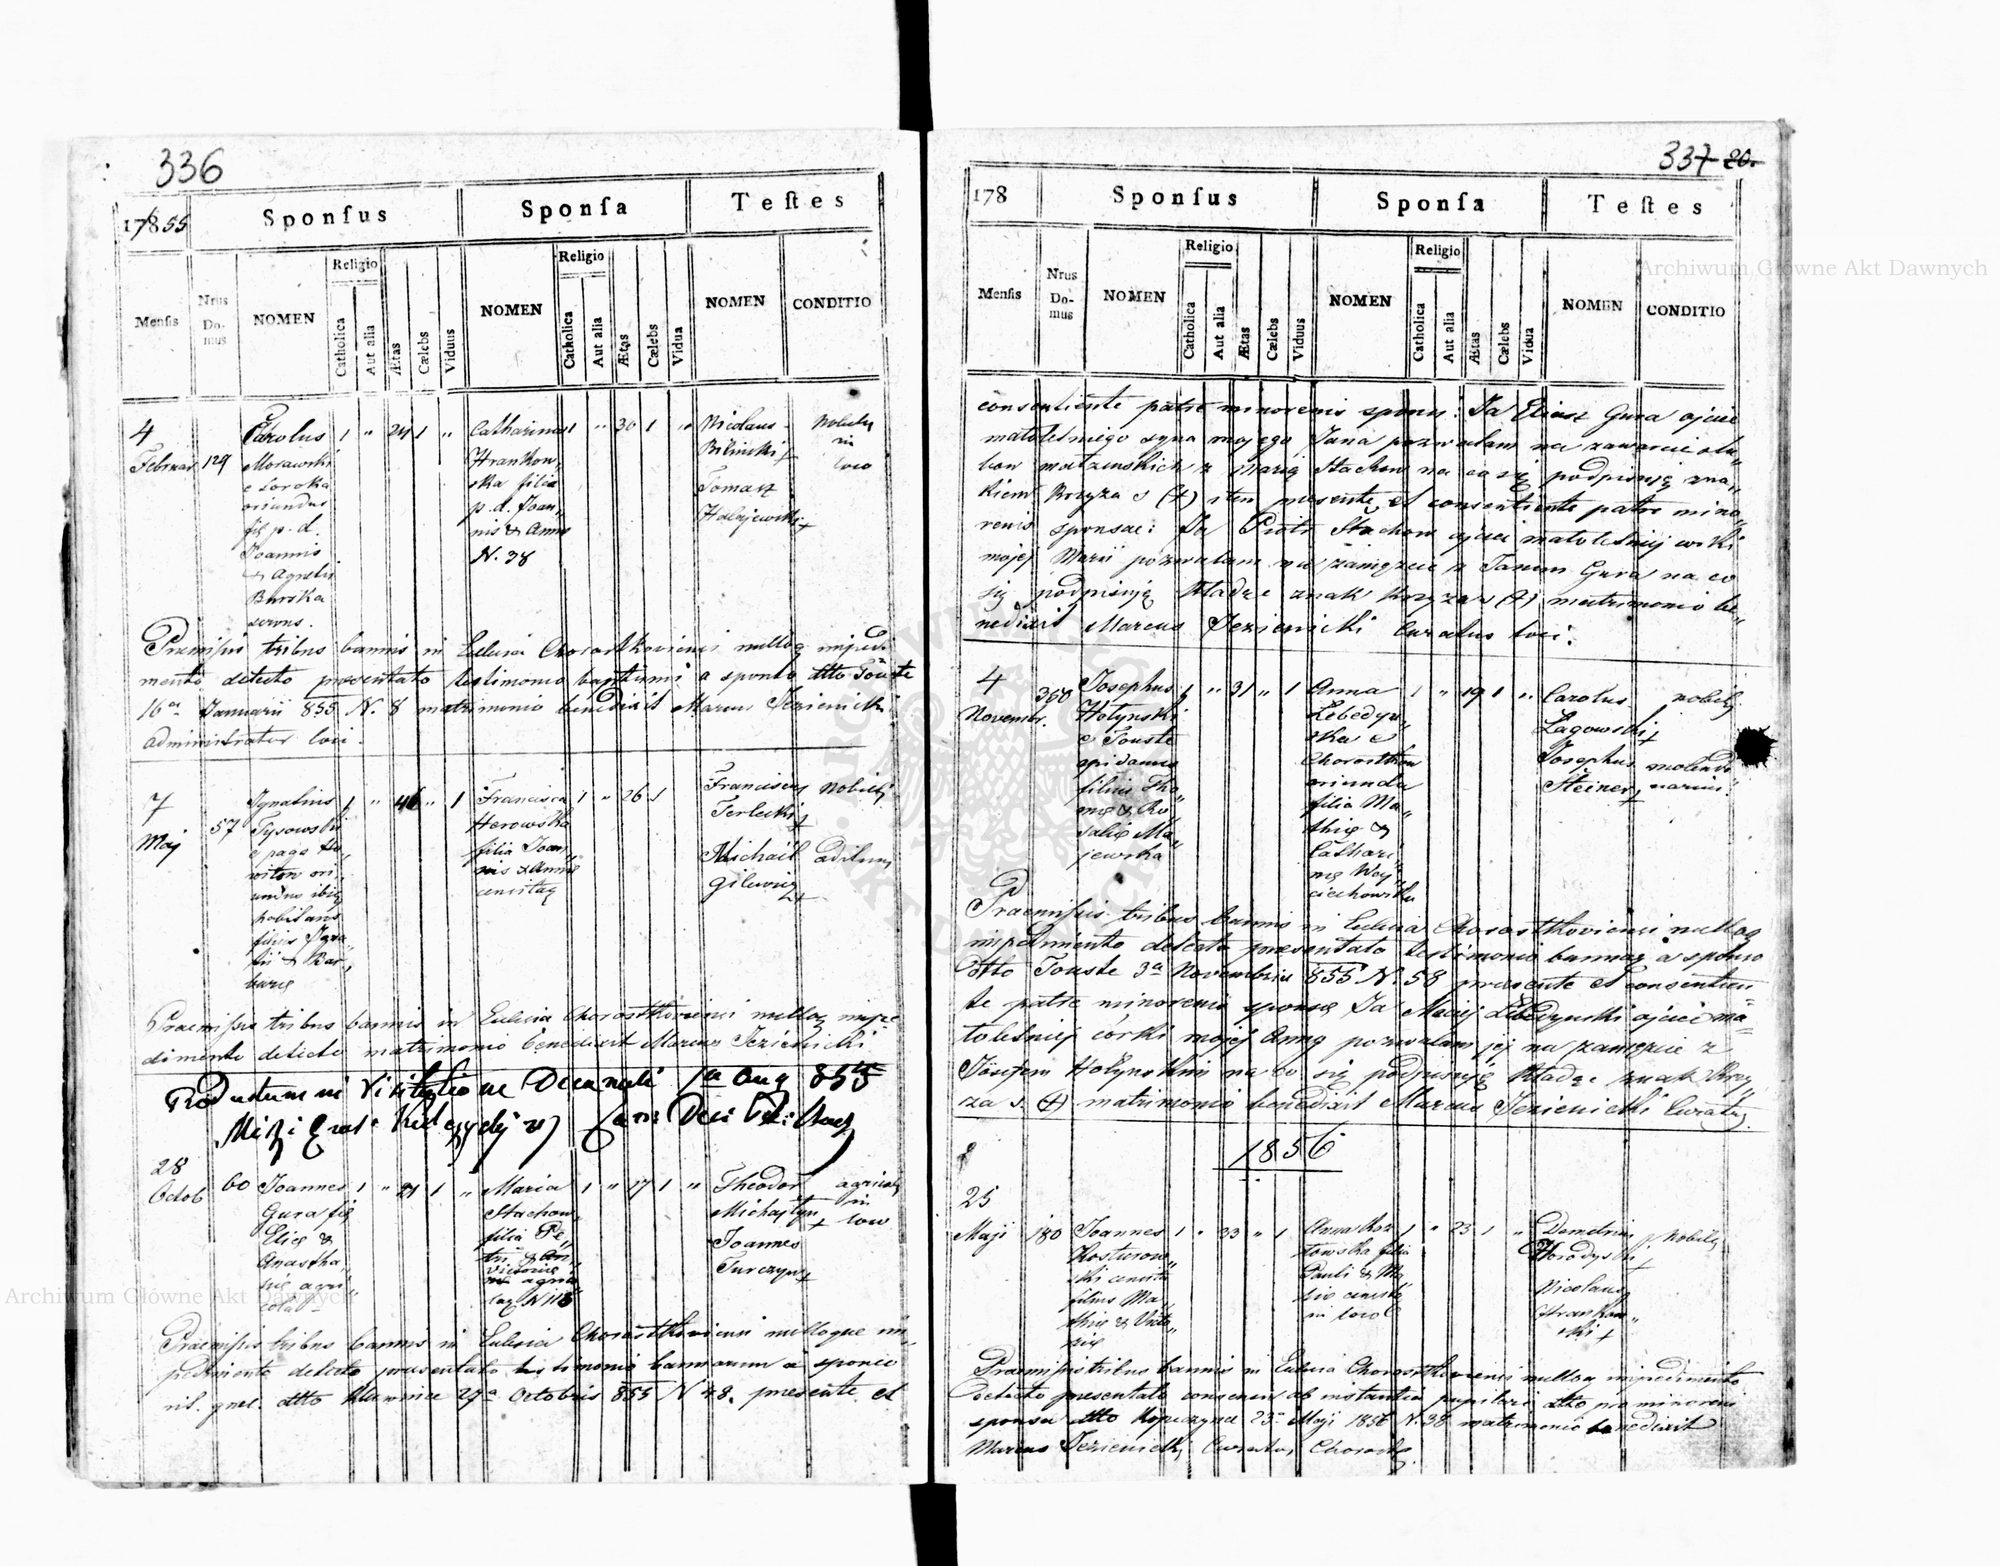 336
1855
Sponſus
Sponſa
Teſtes
Menſis
Nrus Do- mus
NOMEN
Religio
Catholica
Aut alia
Ætas
Cælebs
Viduus
NOMEN
Religio
Catholica
Aut alia
Ætas
Cælebs
Vidua
NOMEN
CONDITIO
4
Februar
129
Carolus
Morawski
e Soroka
oriundus
p. d.
Joannis
& Agnetis
Burska
1 " 24 1 "
Catharina
Hrankow„
ska filia
p. d. Joan„
nis & Anna
N. 38
1 " 30 1 "
Nicolaus
Biliński +
Tomasz
Halajewski +
nobiles
in
loco
Praemissis tribus bannis in Ecclesia Chorostkoviensi nulloq impedi
mento detecto praesentato testimonio baptismi a sponso dtto Touste
16a Januarii 855 N. 8 matrimonio benedixit Marcus Jezienicki
administrator loci.
7
Maj
57
Ignatius
Tysowski
e pago
oriundus ibiq
habitans
filius Igna„
tii & Bar„
barae
1 " 46 " 1
Francisca
Herowska
filia Joan„
nis & Annae
1 " 26 1
Franciscus
Terlecki +
Michaël
Gilewicz +
nobiles
Praemissis tribus bannis in Ecclesia Chorostkoviensi nulloq impe
dimento detecto matrimonio benedixit Marcus Jezienicki
Productum in Visitatione Decanali 1a Aug 855
28
Octob
60
Joannes
Gura fil
Eliae &
Anastha„
siae agri„
cola
1 " 21 1 "
Maria
Stachow,
filia Pe„
tri &
Victoriae
N 118
1 " 17 1 "
Theodor
Michajlyn +
Joannes
Turczyn +
agricolae
in
loco
Praemissis tribus bannis in Ecclesia Chorostkoviensi nulloque im„
pedimento detecto praesentato testimonio bannorum a sponso
rit. graec. dtto 27a Octobris 855 N 48. presente et
337 20.
178
Sponſus
Sponſa
Teſtes
Menſis
Nrus Do- mus
NOMEN
Religio
Catholica
Aut alia
Ætas
Cælebs
Viduus
NOMEN
Religio
Catholica
Aut alia
Ætas
Cælebs
Vidua
NOMEN
CONDITIO
consentiente patre minorenis sponsi: Ja Eliasz Gura ojciec
małoletniego syna mojego Jana pozwalam na zawarcie slu„
bow małzenskich z Marią Stachow na co się podpisuję zna„
kiem Krzyza s (+) item presente et consentiente patre mino„
renis sponsae: Ja Piotr Stachow ojciec małoletniej córki
mojej Marii pozwalam na zamęzcie z Janem Gura na co
się podpisuję kładąc znak krzyza s (+) matrimonio be„
nedixit Marcus Jezienicki Curatus loci.
4
Novembr.
380
Josephus
Hołynski
e Touste
filius Tho„
mae & Ro„
saliae Ma„
jewska
1 " 31 " 1
Anna
Lebedyn„
ska e
Chorostkow
oriunda
filia Ma„
thiae &
Cathari„
nae Woj„
ciechowska
1 " 19 1 "
Carolus
Łagowski +
Josephus
Steiner +
nobilis
molendi„
narius
Praemissis tribus bannis in Ecclesia Chorostkoviensi nulloq
impedimento detecto praesentato testimonio bannoq à sponso
dtto Touste 3a Novembris 855 N. 58 praesente et consentien
te patre minorenis sponsae Ja Maciej Lebedynski ojciec ma„
łoletniej córki mojej Anny pozwalam jej na zamęzcie z
Józefem Hołynskim na co się podpisuję kładąc znak Krzy
za s. (+) matrimonio benedixit Marcus Jezienicki Curatus
1856
25
Maji
180
Joannes
Kosturow„
ski
filius Ma„
thiae & Victo„
riae
1 " 33 " 1
Anna Koz
łowska filia
Pauli & Ma„
riae
in loco
1 " 23 1 "
Demetrius
Horodyski +
Nicolaus
Hrankow„
ski +
Nobiles
Praemissis tribus bannis in Ecclesia Chorostkoviensi nulloq impedimento
detecto praesentato consensu ab instantia pupilari dtto pro minoreni
sponsa dtto Kopeczynce 23a Maji 1856 N. 38 matrimonio benedixit
Marcus Jezienicki Curatus
Archiwum Główne Akt Dawnych
Archiwum Główne Akt Dawnych